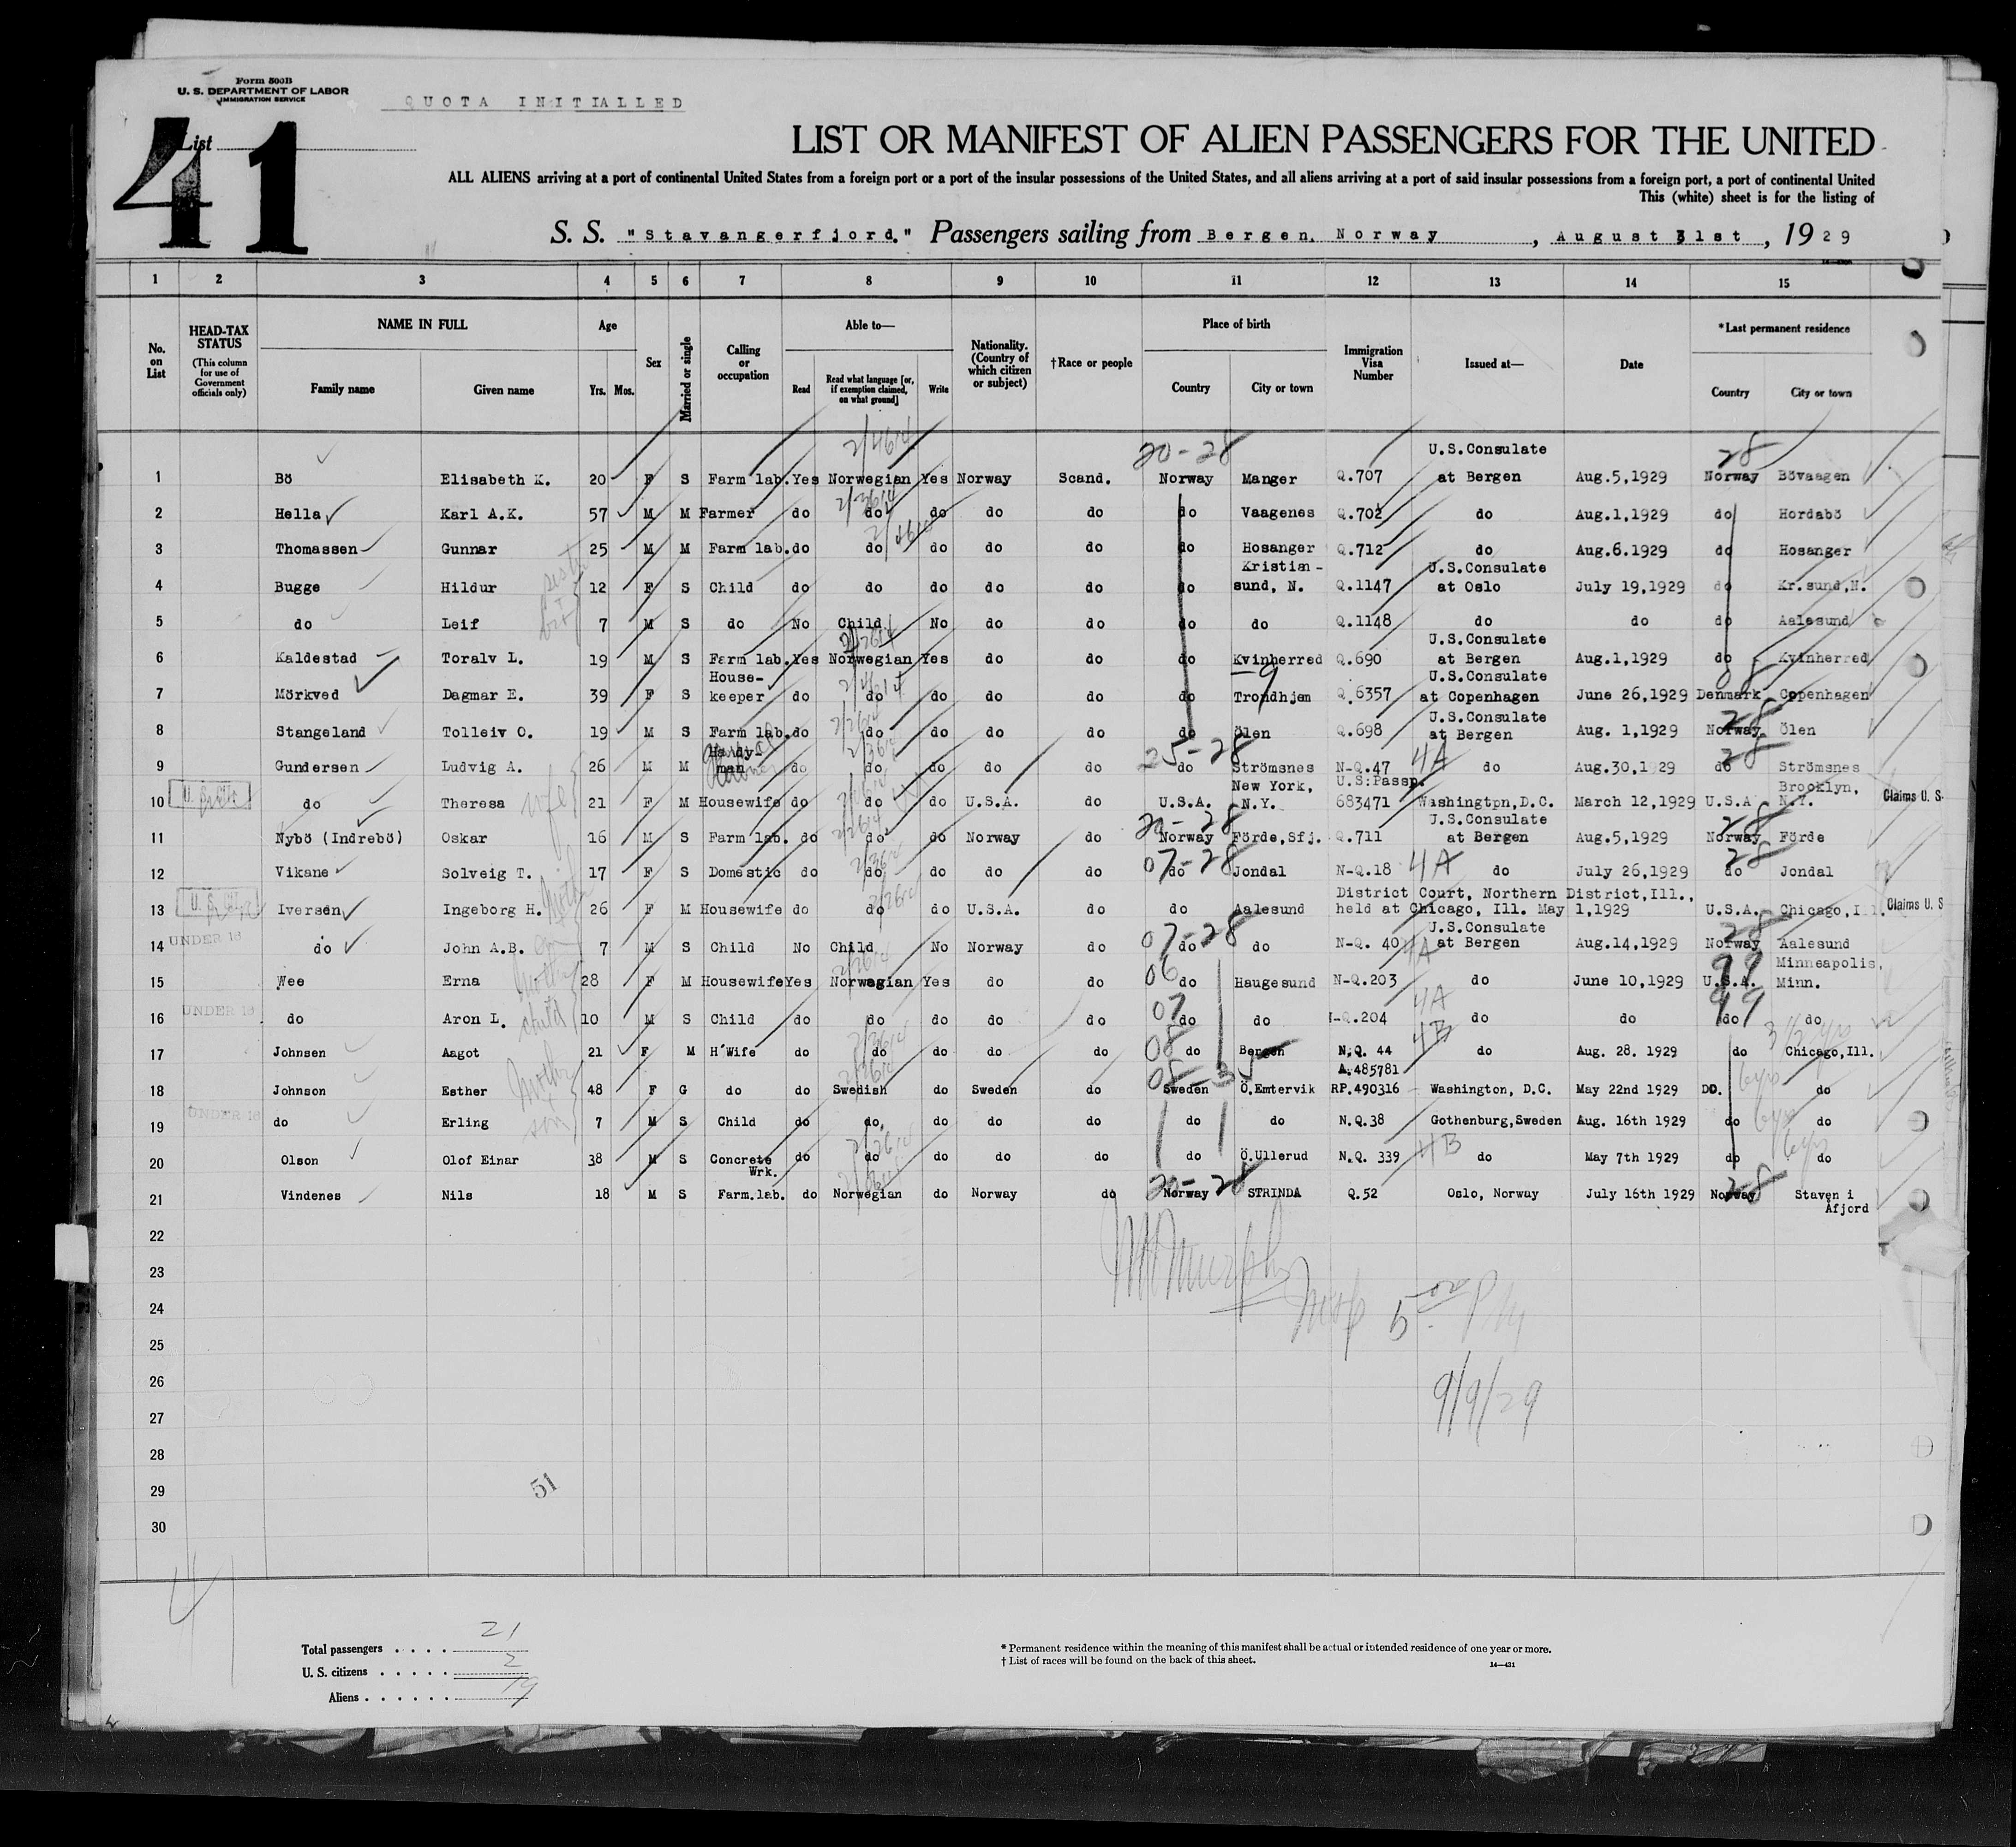 Form 500B
U. S. DEPARTMENT OF LABOR
IMMIGRATION SERVICE
QUOTA INITIALLED
List
41
LIST OR MANIFEST OF ALIEN PASSENGERS FOR THE UNITED
ALL ALIENS arriving at a port of continental United States from a foreign port or a port of the insular possessions of the United States, and all aliens arriving at a port of said insular possessions from a foreign port, a port of continental United
This (white) sheet is for the listing of
S. S. "Stavangerfjord." Passengers sailing from Bergen, Norway, August 31st, 1929
1 2 3 4 5 6 7 8 9 10 11 12 13 14 15
No. on List HEAD-TAX STATUS (This column for use of Government officials only) NAME IN FULL Family name Given name Age Yrs. Mos. Sex Married or single Calling or occupation Able to— Read Read what language [or, if exemption claimed, on what ground] Write Nationality. (Country of which citizen or subject) †Race or people Place of birth Country City or town Immigration Visa Number Issued at— Date *Last permanent residence Country City or town
20-28 U.S.Consulate 28
1 Bö Elisabeth K. 20 F S Farm lab. Yes Norwegian Yes Norway Scand. Norway Manger Q.707 at Bergen Aug.5,1929 Norway Bövaagen
2 Hella Karl A.K. 57 M M Farmer do do do do do do Vaagenes Q.702 do Aug.1,1929 do Hordabö
3 Thomassen Gunnar 25 M M Farm lab. do do do do do do Hosanger Q.712 do Aug.6.1929 do Hosanger
Kristian- U.S.Consulate
4 Bugge Hildur 12 F S Child do do do do do do sund, N. Q.1147 at Oslo July 19,1929 do Kr.sund,N.
5 do Leif 7 M S do No Child No do do do do Q.1148 do do do Aalesund
U.S.Consulate
6 Kaldestad Toralv L. 19 M S Farm lab. Yes Norwegian Yes do do do Kvinherred Q.690 at Bergen Aug.1,1929 do Kvinherred
House- U.S.Consulate
7 Mörkved Dagmar E. 39 F S keeper do do do do do do Trondhjem Q.6357 at Copenhagen June 26,1929 Denmark Copenhagen
U.S.Consulate 28
8 Stangeland Tolleiv O. 19 M S Farm lab. do do do do do do Ölen Q.698 at Bergen Aug. 1,1929 Norway Ölen
Handy- 25-28 4A 28
9 Gundersen Ludvig A. 26 M M man do do do do do do Strömsnes N-Q.47 do Aug.30,1929 do Strömsnes
wife New York, U.S.Passp. Brooklyn,
10 do Theresa 21 F M Housewife do do do U.S.A. do U.S.A. N.Y. 683471 Washington,D.C. March 12,1929 U.S.A N.Y. Claims U. S.
20-28 U.S.Consulate 28
11 Nybö (Indrebö) Oskar 16 M S Farm lab. do do do Norway do Norway Förde,Sfj. Q.711 at Bergen Aug.5,1929 Norway Förde
07-28 4A 28
12 Vikane Solveig T. 17 F S Domestic do do do do do do Jondal N-Q.18 do July 26,1929 do Jondal
U. S. CIT. District Court, Northern District,Ill.,
13 Iversen Ingeborg H. 26 F M Housewife do do do U.S.A. do do Aalesund held at Chicago, Ill. May 1,1929 U.S.A. Chicago,Ill. Claims U. S
UNDER 16 07-28 4A U.S.Consulate 28
14 do John A.B. 7 M S Child No Child No Norway do do do N-Q. 40 at Bergen Aug.14,1929 Norway Aalesund
06 99 Minneapolis,
15 Wee Erna 28 F M Housewife Yes Norwegian Yes do do do Haugesund N-Q.203 do June 10,1929 U.S.A. Minn.
UNDER 16 child 07 4A 99
16 do Aron L. 10 M S Child do do do do do do do N-Q.204 do do do do
08 4B 3 1/2 yrs
17 Johnsen Aagot 21 F M H'Wife do do do do do do Bergen N.Q. 44 do Aug. 28. 1929 do Chicago,Ill.
mother 08-35 A.485781 6yrs
18 Johnson Esther 48 F G do do Swedish do Sweden do Sweden Ö.Emtervik RP.490316 Washington, D.C. May 22nd 1929 DO. do
UNDER 16 son 6yrs
19 do Erling 7 M S Child do do. do do do do do N.Q.38 Gothenburg,Sweden Aug. 16th 1929 do do
4B 6yrs
20 Olson Olof Einar 38 M S Concrete Wrk. do do do do do do Ö.Ullerud N.Q. 339 do May 7th 1929 do do
20-28 28
21 Vindenes Nils 18 M S Farm.lab. do Norwegian do Norway do Norway STRINDA Q.52 Oslo, Norway July 16th 1929 Norway Staven i Afjord
22
23
24
25
26
27
28
29
30
5 00 PM
9/9/29
51
41
Total passengers . . . . 21
U. S. citizens . . . . . 2
Aliens . . . . . . 19
* Permanent residence within the meaning of this manifest shall be actual or intended residence of one year or more.
† List of races will be found on the back of this sheet.
14—431